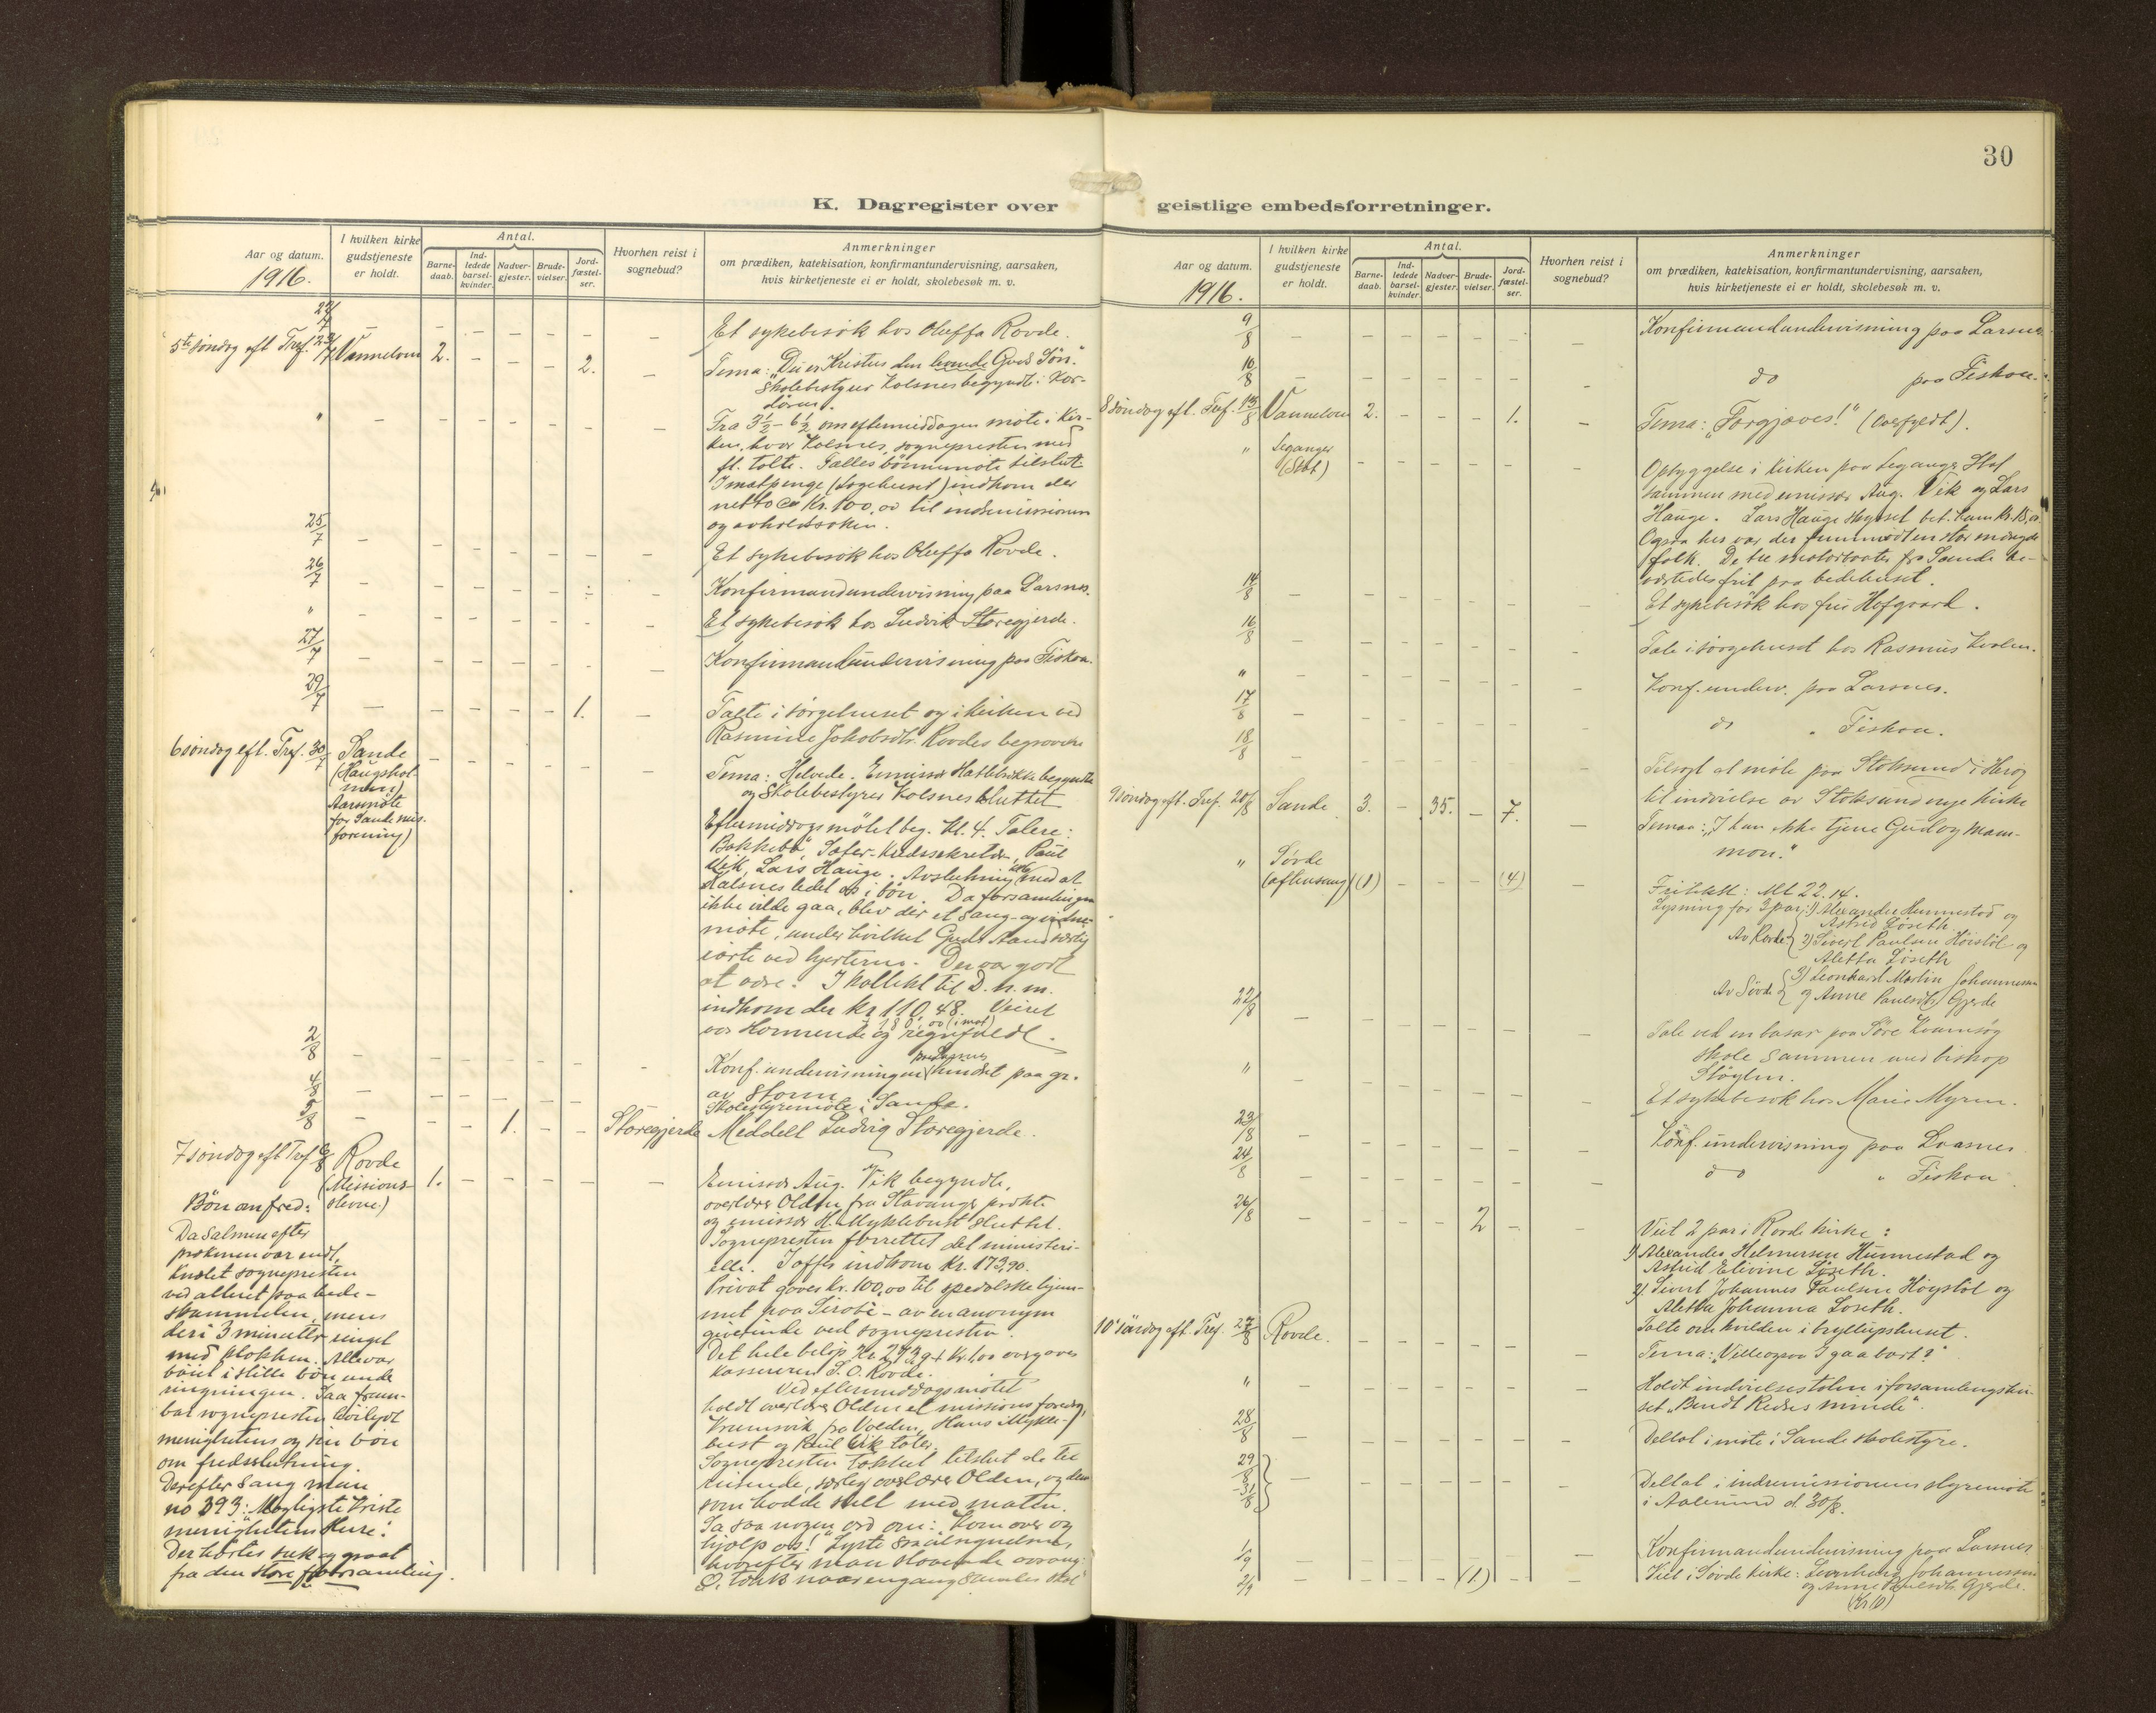 30
K. Dagregister over geistlige embedsforretninger.
Aar og datum.
1916.
I hvilken kirke gudstjeneste er holdt.
Antal.
Barne-daab.
Ind-ledede barsel-kvinder.
Nadver-gjester.
Brude-vielser.
Jord-fæstel-ser.
Hvorhen reist i sognebud?
Anmerkninger
om prædiken, katekisation, konfirmantundervisning, aarsaken,
hvis kirketjeneste ei er holdt, skolebesøk m. v.
22/7 – – – – – – – Et sykebesøk hos Oluffa Rovde.
5te søndag eft. Tref. 23/7 Vannelven 2. – – – 2. – Tema: "Du er Kristus den levende Guds Søn."
Skolebestyrer Kolsnes begyndte i Kor-
døren.
" – – – – – – – Fra 3½ – 6½ om eftermiddagen møte i kir-
ken, hvor Kolsnes, sognepresten med
fl. talte. Fælles bønnemøte tilslut.
I matpenge (Logehuset) indkom der
netto ca Kr. 100,00 til indremissionen
og avholdssaken.
25/7 – – – – – – – Et sykebesøk hos Oluffa Rovde.
26/7 – – – – – – – Konfirmandundervisning paa Larsnes.
" – – – – – – – Et sykebesøk hos Ludvik Storegjerde.
27/7 – – – – – – – Konfirmandundervisning paa Fiskaa.
29/7 – – – – – 1. – Talte i sørgehuset og i kirken ved
Rasmine Jakobsdtr. Rovdes begravelse
6 søndag eft. Tref. 30/7 Sande
(Haugshol-
men)
Aarsmøte
for Sande mis.
forening)
– – – – – – Tema: Helvede. Emissær Hatlebrekke begyndte
og Skolebestyrer Kolsnes sluttet
Eftermiddagsmøtet beg. Kl. 4. Talere:
Bakkebø, Sekretær, Paul
Vik, Lars Hauge. Avslutning med at
Kalsnes ledet os i bøn. Da forsamlingen
ikke vilde gaa, blev der et sang- og vidne-
møte, under hvilket Guds Aand særlig
rørte ved hjerterne. Der var godt
at være. I kollekt til D. n. m.
indkom der kr 110,48. Veiret
180,00 (i mat)
var stormende og regnfuldt.
2/8 – – – – – – – Konf. undervisningen paa Larsnes hindret paa gr.
av Storm
4/8 – – – – – – Skolestyremøte i Sande.
5/8 – – – 1. – – Storegjerde Meddelt Ludvig Storegjerde.
7 søndag eft Tref 6/8 Rovde
(Missions-
stevne)
1. – – – – – Emissær Aug. Vik begyndte,
overlærer Olden fra Stavanger prækte
og emissær H. Myklebust sluttet.
Sognepresten forrettet det ministeri-
elle. I offer indkom Kr. 173,90.
Privat gaves kr. 100,00 til spedalskehjem-
met paa Sirabe – av en anonym
giverinde ved sognepresten.
Det hele beløp Kr 273,9 + Kr 1,00 overgaves
kassereren S. O. Rovde.
Ved eftermiddagsmøtet
holdt overlærer Olden et missionsforedrag,
Krumsvik fra Volden, Hans Mykle-
bust og Paul Vik taler.
Sognepresten takket tilslut de til-
reisende, særlig overlærer Olden, og dem
som hadde stelt med maten.
Sa saa nogen ord om: "Kom over og
hjælp os!" Lyste velsignelsen,
hvorefter man staaende avsang:
O, tænk naar engang samles skal
Bøn om fred:
Da salmen efter
prækenen var endt,
knælet sognepresten
ved alteret paa bede-
skammelen, mens
der i 3 minutter ringet
med klokken. Alle var
bøiet i stille bøn under
ringningen. Saa frem-
bar sognepresten høilydt
menighetens og sin bøn
om fredsslutning.
Derefter sang man
no 393: "Mægtigste Kriste
menighetens Herre".
Der hørtes suk og graat
fra den store forsamling.
Aar og datum.
1916.
I hvilken kirke gudstjeneste er holdt.
Antal.
Barne-daab.
Ind-ledede barsel-kvinder.
Nadver-gjester.
Brude-vielser.
Jord-fæstel-ser.
Hvorhen reist i sognebud?
Anmerkninger
om prædiken, katekisation, konfirmantundervisning, aarsaken,
hvis kirketjeneste ei er holdt, skolebesøk m. v.
9/8 – – – – – – – Konfirmandundervisning paa Larsnes
10/8 – – – – – – – do paa Fiskaa.
8 søndag eft. Tref. 13/8 Vannelven 2. – – – 1. – Tema: "Forgjæves!" (Overfyldt).
" Leganger
(Slot)
– – – – – – Opbyggelse i kirken paa Leganger Hof
sammen med emissær Aug. Vik og Lars
Hauge. Lars Hauge skysset bet. ham Kr. 15,00
Ogsaa her var der fremmødt en stor mængde
folk. De tre motorbaater fra Sande be-
værtedes frit paa bedehuset.
14/8 – – – – – – – Et sykebesøk hos fru Hofgaard.
16/8 – – – – – – – Tale i sørgehuset hos Rasmus
" – – – – – – Konf. underv. paa Larsnes.
17/8 – – – – – – – do " Fiskaa.
18/8 – – – – – – – Tilsagt at møte paa Stoksund i Herøy
til indvielse av Stoksund nye kirke
9 søndag eft. Tref. 20/8 Sande 3. – 35. – 7. – Tema: "I kan ikke tjene Gud og Mam-
mon."
" Søvde
(aftensang) (1) – – – (4) – Fritekst: Mt 22.14.
Lysning for 3 par: 1) Alexander Hunnestad og
Astrid Løseth
Av Rovde { 2) Sivert Paulsen Høistøl og
Aletta Løseth
Av Søvde { 3) Leonhard Martin Johannessen
og Anne Paulsdtr Gjerde
22/8 – – – – – – – Tale ved en basar paa Søre Kvamsøy
skole sammen med biskop
Støylen.
" – – – – – – – Et sykebesøk hos Marie Myren.
23/8 – – – – – – – Konf. undervisning paa Larsnes
24/8 – – – – – – – do " Fiskaa.
26/8 – – – – 2 – – Viet 2 par i Rovde kirke:
1) Alexander Helmersen Hunnestad og
Astrid Elivine Løseth.
2) Sivert Johannes Paulsen Høystøl og
Aletta Johanna Løseth.
Talte om kvelden i bryllupshuset.
10' søndag eft. Tref. 27/8 Rovde. – – – – – – Tema: "Vil ogsaa I gaa bort?"
" – – – – – – – Holdt indvielsestalen i forsamlingshu-
set "Bendt Rednes minde".
28/8 – – – – – – – Deltat i møte i Sande skolestyre.
29/8 – 31/8 } – – – – – – – Deltat i indremissionens styremøte
i Aalesund d. 30/8.
1/9 – – – – – – – Konfirmandundervisning paa Larsnes
2/9 – – – – (1) – – Viet i Søvde kirke: Leonhard Johannessen
og Anne Paulsdtr. Gjerde.